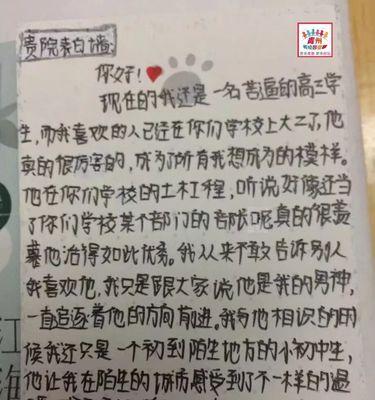 贵院表白墙:
你好!
现在的我还是一名苦逼的高三学
生,而我喜欢的人已经在你们学校上大三了,他
真的很厉害的,成为了所有我想成为的模样。
他在你们学校的土木工程,听说好像还当
了你们学校某个部门的部长呢真的很羡
慕他活得如此优秀。我从来不敢告诉别人
我喜欢他,我只是跟大家说他是我的男神,
一直追逐着他的方向前进。我与他相识的时
候我还只是一个初到陌生地方的小初中生,
他让我在陌生的城市感受到了不一样的温
江
海